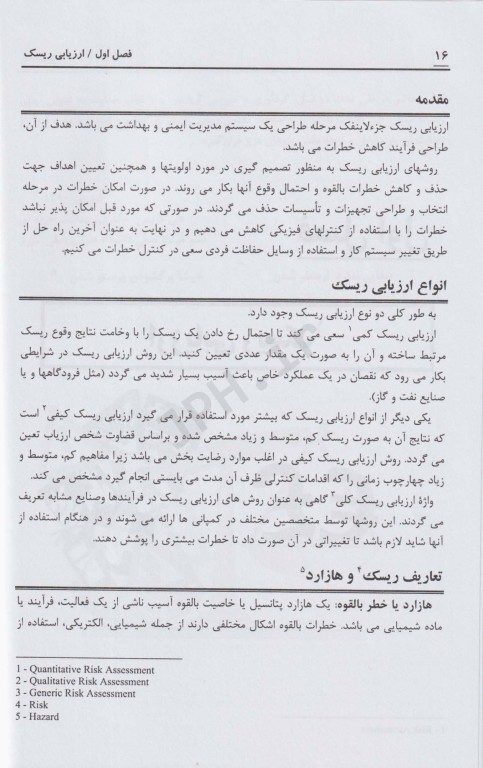 ۱۶ فصل اول / ارزیابی ریسک
مقدمه
ارزیابی ریسک جزءلاینفک مرحله طراحی یک سیستم مدیریت ایمنی و بهداشت می باشد. هدف از آن،
طراحی فرآیند کاهش خطرات می باشد.
روشهای ارزیابی ریسک به منظور تصمیم گیری در مورد اولویتها و همچنین تعیین اهداف جهت
حذف و کاهش خطرات بالقوه و احتمال وقوع آنها بکار می روند. در صورت امکان خطرات در مرحله
انتخاب و طراحی تجهیزات و تأسیسات حذف می گردند. در صورتی که مورد قبل امکان پذیر نباشد
خطرات را با استفاده از کنترلهای فیزیکی کاهش می دهیم و در نهایت به عنوان آخرین راه حل از
طریق تغییر سیستم کار و استفاده از وسایل حفاظت فردی سعی در کنترل خطرات می کنیم.
انواع ارزیابی ریسک
به طور کلی دو نوع ارزیابی ریسک وجود دارد.
ارزیابی ریسک کمی۱ سعی می کند تا احتمال رخ دادن یک ریسک را با وخامت نتایج وقوع ریسک
مرتبط ساخته و آن را به صورت یک مقدار عددی تعیین کنید. این روش ارزیابی ریسک در شرایطی
بکار می رود که نقصان در یک عملکرد خاص باعث آسیب بسیار شدید می گردد (مثل فرودگاهها و یا
صنایع نفت و گاز).
یکی دیگر از انواع ارزیابی ریسک که بیشتر مورد استفاده قرار می گیرد ارزیابی ریسک کیفی۲ است
که نتایج آن به صورت ریسک کم، متوسط و زیاد مشخص شده و براساس قضاوت شخص ارزیاب تعین
می گردد. روش ارزیابی ریسک کیفی در اغلب موارد رضایت بخش می باشد زیرا مفاهیم کم، متوسط و
زیاد چهارچوب زمانی را که اقدامات کنترلی ظرف آن مدت می بایستی انجام گیرد مشخص می کند.
واژهٔ ارزیابی ریسک کلی۳ گاهی به عنوان روش های ارزیابی ریسک در فرآیندها وصنایع مشابه تعریف
می گردند. این روشها توسط متخصصین مختلف در کمپانی ها ارائه می شوند و در هنگام استفاده از
آنها شاید لازم باشد تا تغییراتی در آن صورت داد تا خطرات بیشتری را پوشش دهند.
تعاریف ریسک۴ و هازارد۵
هازارد یا خطر بالقوه: یک هازارد پتانسیل یا خاصیت بالقوه آسیب ناشی از یک فعالیت، فرآیند یا
ماده شیمیایی می باشد. خطرات بالقوه اشکال مختلفی دارند از جمله شیمیایی، الکتریکی، استفاده از
1 - Quantitative Risk Assessment
2 - Qualitative Risk Assessment
3 - Generic Risk Assessment
4 - Risk
5 - Hazard